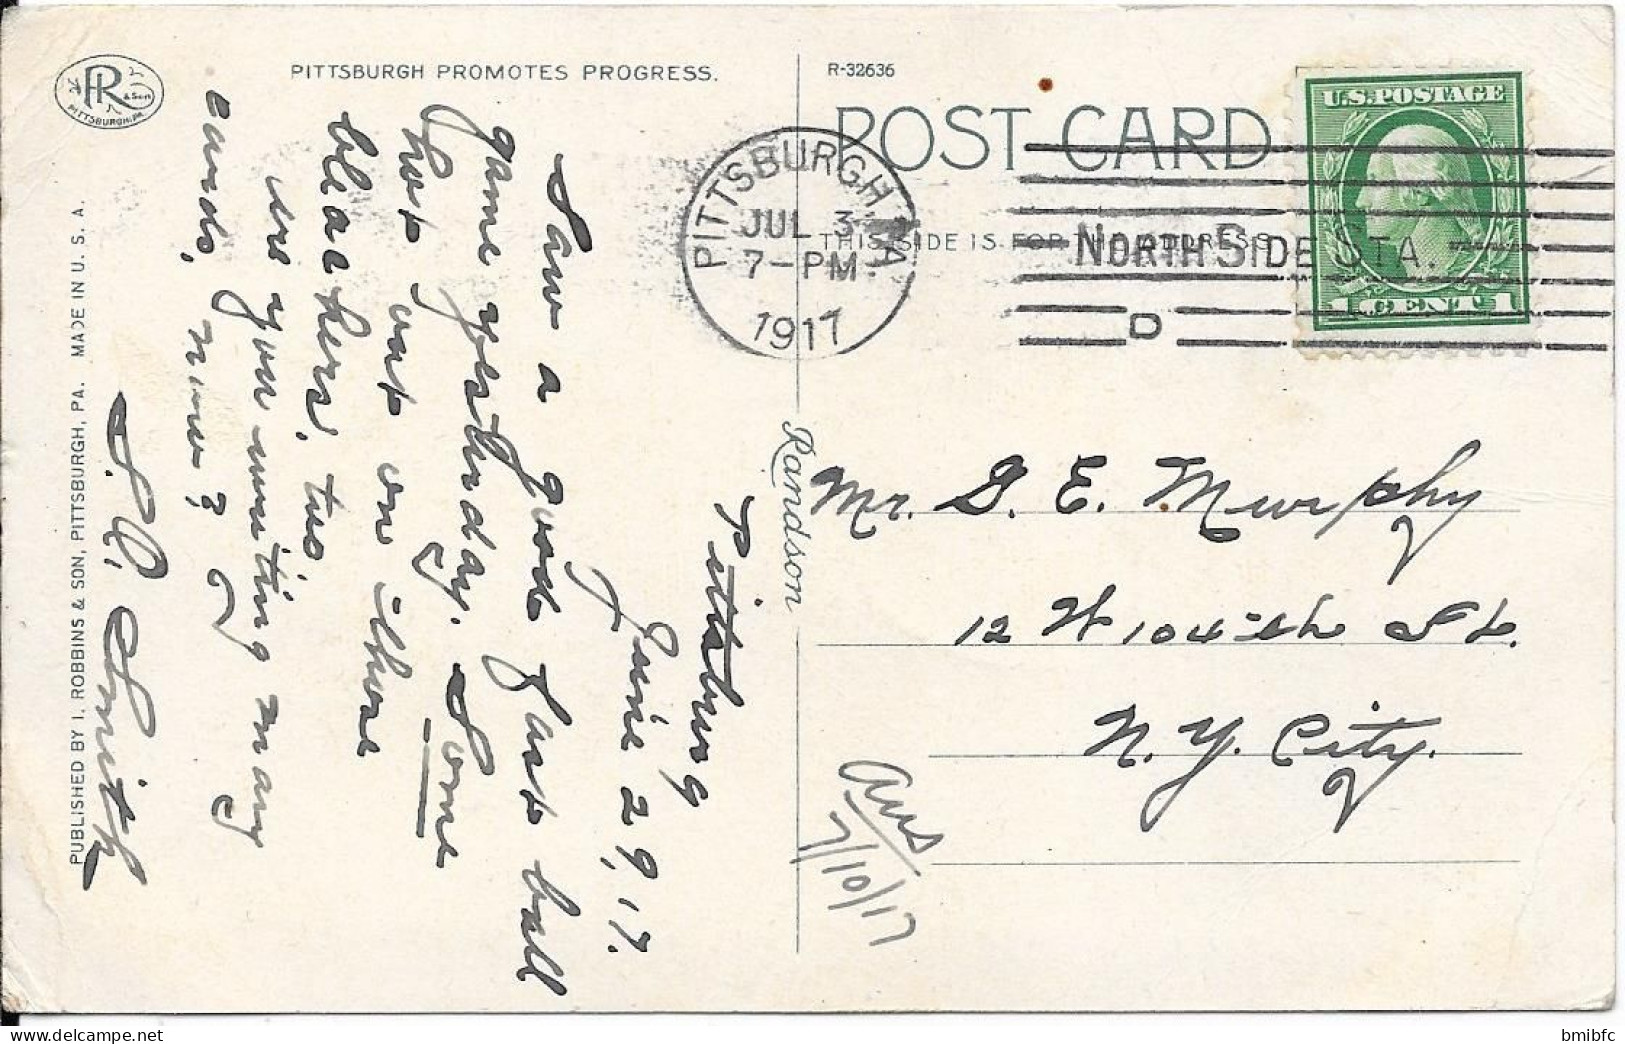 PITTSBURGH PROMOTES PROGRESS.
R-32636
PR & Son
PITTSBURGH, PA.
POST CARD
THIS SIDE IS FOR THE ADDRESS
U.S. POSTAGE
1 CENT 1
PITTSBURGH, PA.
JUL 3
7-PM
1917
NORTH SIDE STA.
D
Pittsburg
June 29, 17.
Saw a good fast ball
game yesterday. Some
hot out on there
bleachers, too
are you writing many
cards, now?
S. A. Smith
PUBLISHED BY I. ROBBINS & SON, PITTSBURGH, PA. MADE IN U. S. A.
Randson
Mr. G. E. Murphy
12 W 104th St.
N. Y. City.
Ans
7/10/17
bmibfc